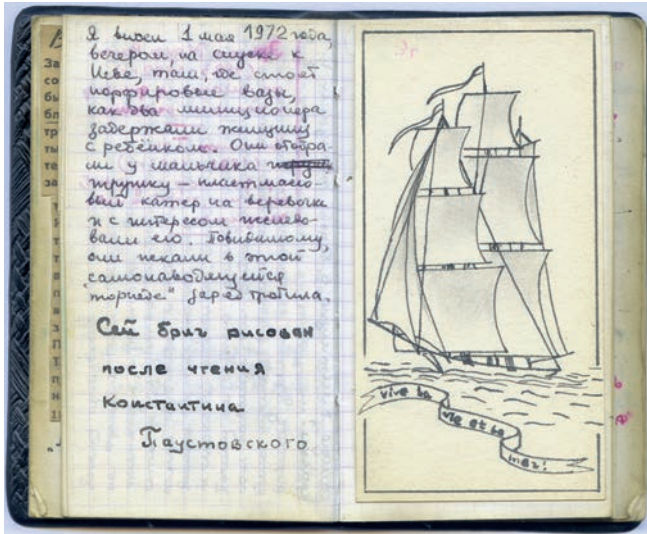 Я видел 1 мая 1972 года,
вечером, на спуске к
Неве, там, где стоят
порфировые вазы,
как два милиционера
задержали женщину
с ребёнком. Они отобра-
ли у мальчика
игрушку — пластмассо-
вый катер на верёвочке
и с интересом исследо-
вали его. Повидимому,
они искали в этой
самонаводящейся
"торпеде" заряд тротила.
Сей бриг рисован
после чтения
Константина
Паустовского.
Vive la
vie et la
mer!